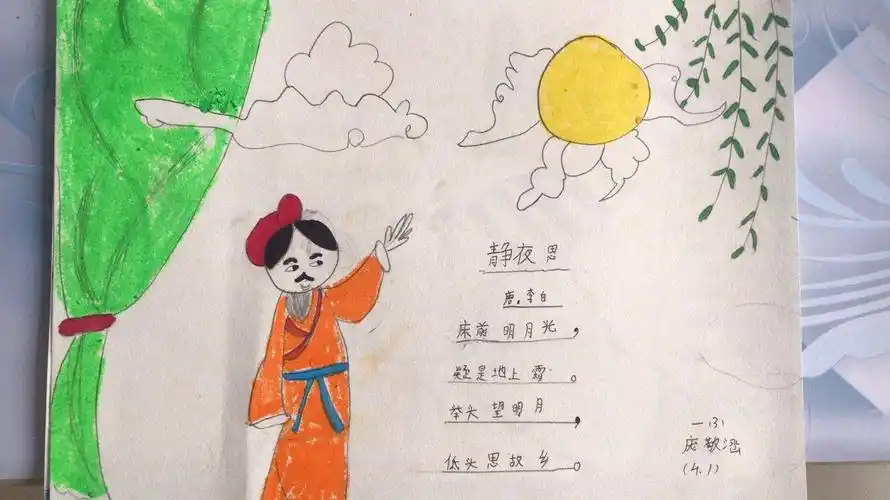 静夜思
唐.李白
床前明月光，
疑是地上霜。
举头望明月，
低头思故乡。
一(3)
庞敬涵
(4.1)